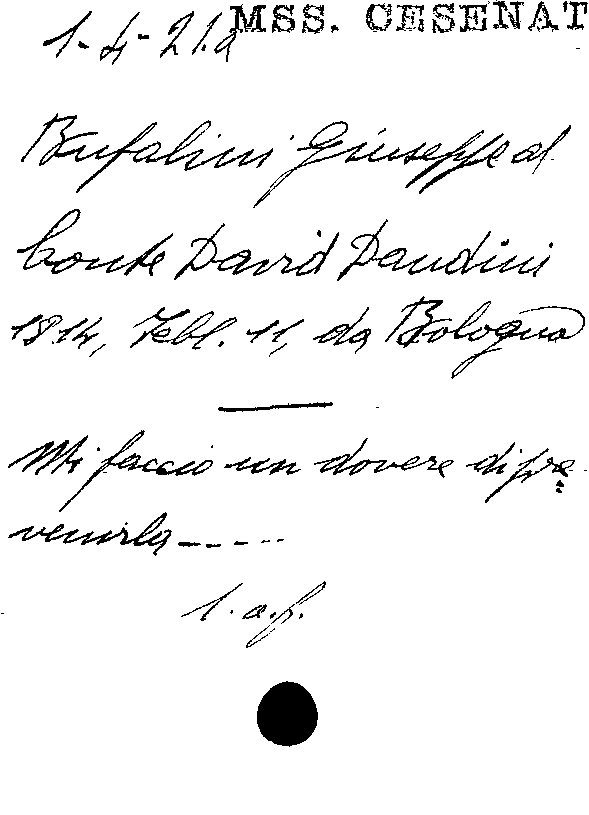 1-4-21.a MSS. CESENAT
Bufalini Giuseppe al
Conte David Dandini
1814, Febb. 11, da Bologna
Mi faccio un dovere di pre-
venirla-----
l. a. f.